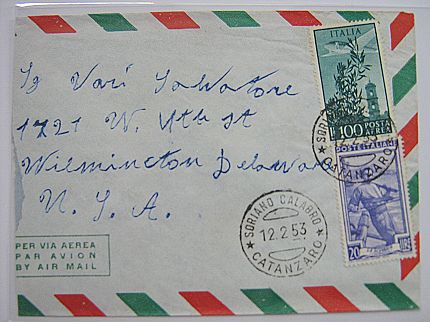 ITALIA
L. 100 POSTA
AEREA
Sg Vari Salvatore
1721 W. 4th St
Wilmington Delawar
U. S. A.
SORIANO CALABRO
12.2.53
CATANZARO
POSTE ITALIANE
20 LIRE
SORIANO CALABRO
12.2.53
CATANZARO
PER VIA AEREA
PAR AVION
BY AIR MAIL